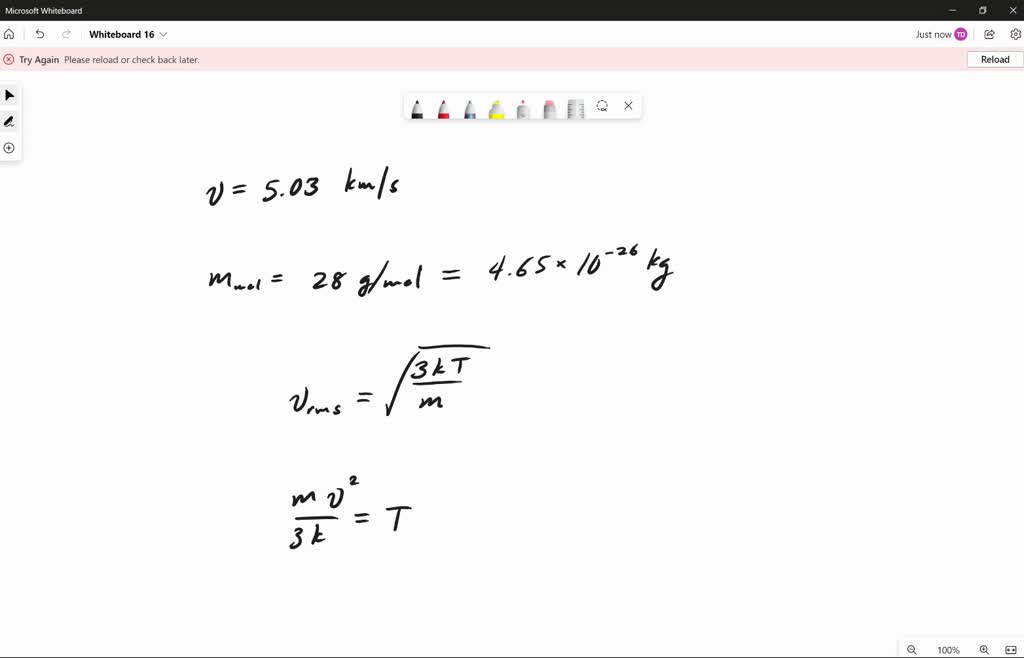 Microsoft Whiteboard
Whiteboard 16
Just now TD
Try Again Please reload or check back later.
Reload
v = 5.03 km/s
m_mol = 28 g/mol = 4.65 × 10^-26 kg
v_rms = √(3kT/m)
mv²/3k = T
100%